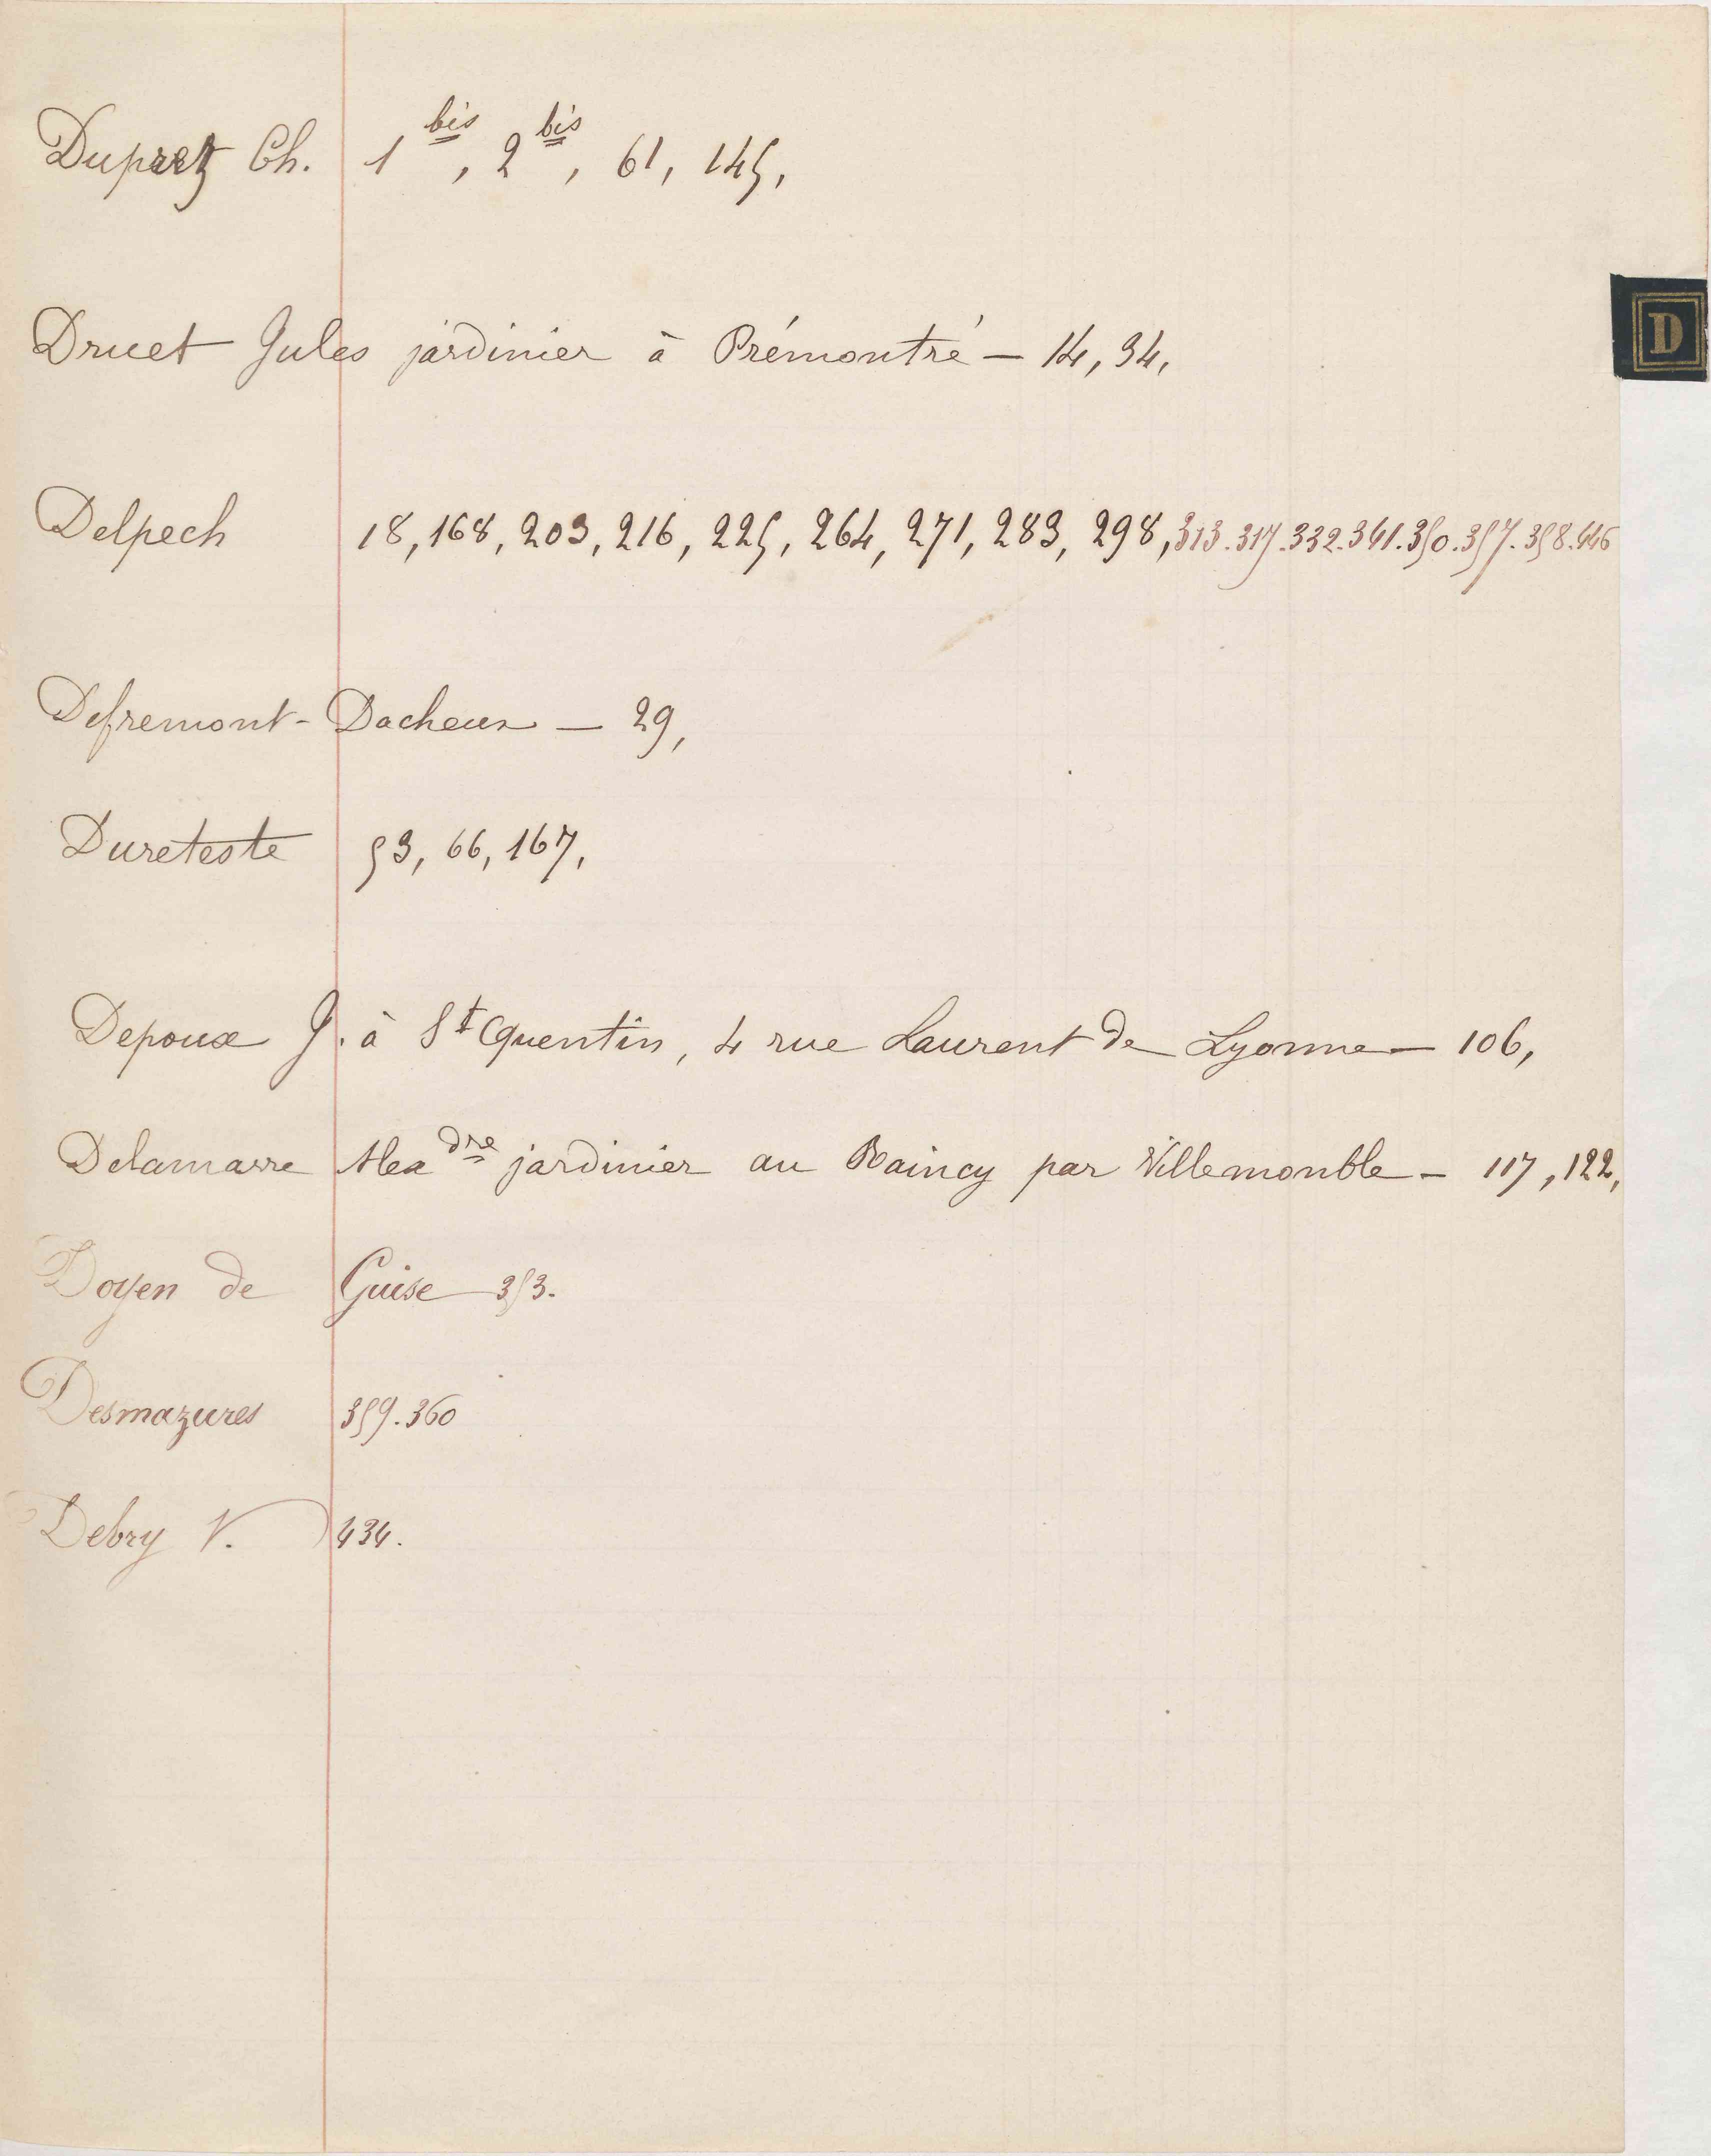 Dupretz Ch. 1 bis, 2 bis, 61, 145,
D
Druet Jules jardinier à Prémontré — 14, 34,
Delpech 18, 168, 203, 216, 225, 264, 271, 283, 298, 313. 317. 332. 341. 350. 357. 358. 446
Defremont-Dacheux — 29,
Dureteste 53, 66, 167,
Depoux J. à St Quentin, 4 rue Laurent de Lyonne — 106,
Delamarre Alexdre jardinier au Raincy par Villemonble — 117, 122,
Doyen de Guise 353.
Desmazures 359. 360
Debry V. 434.